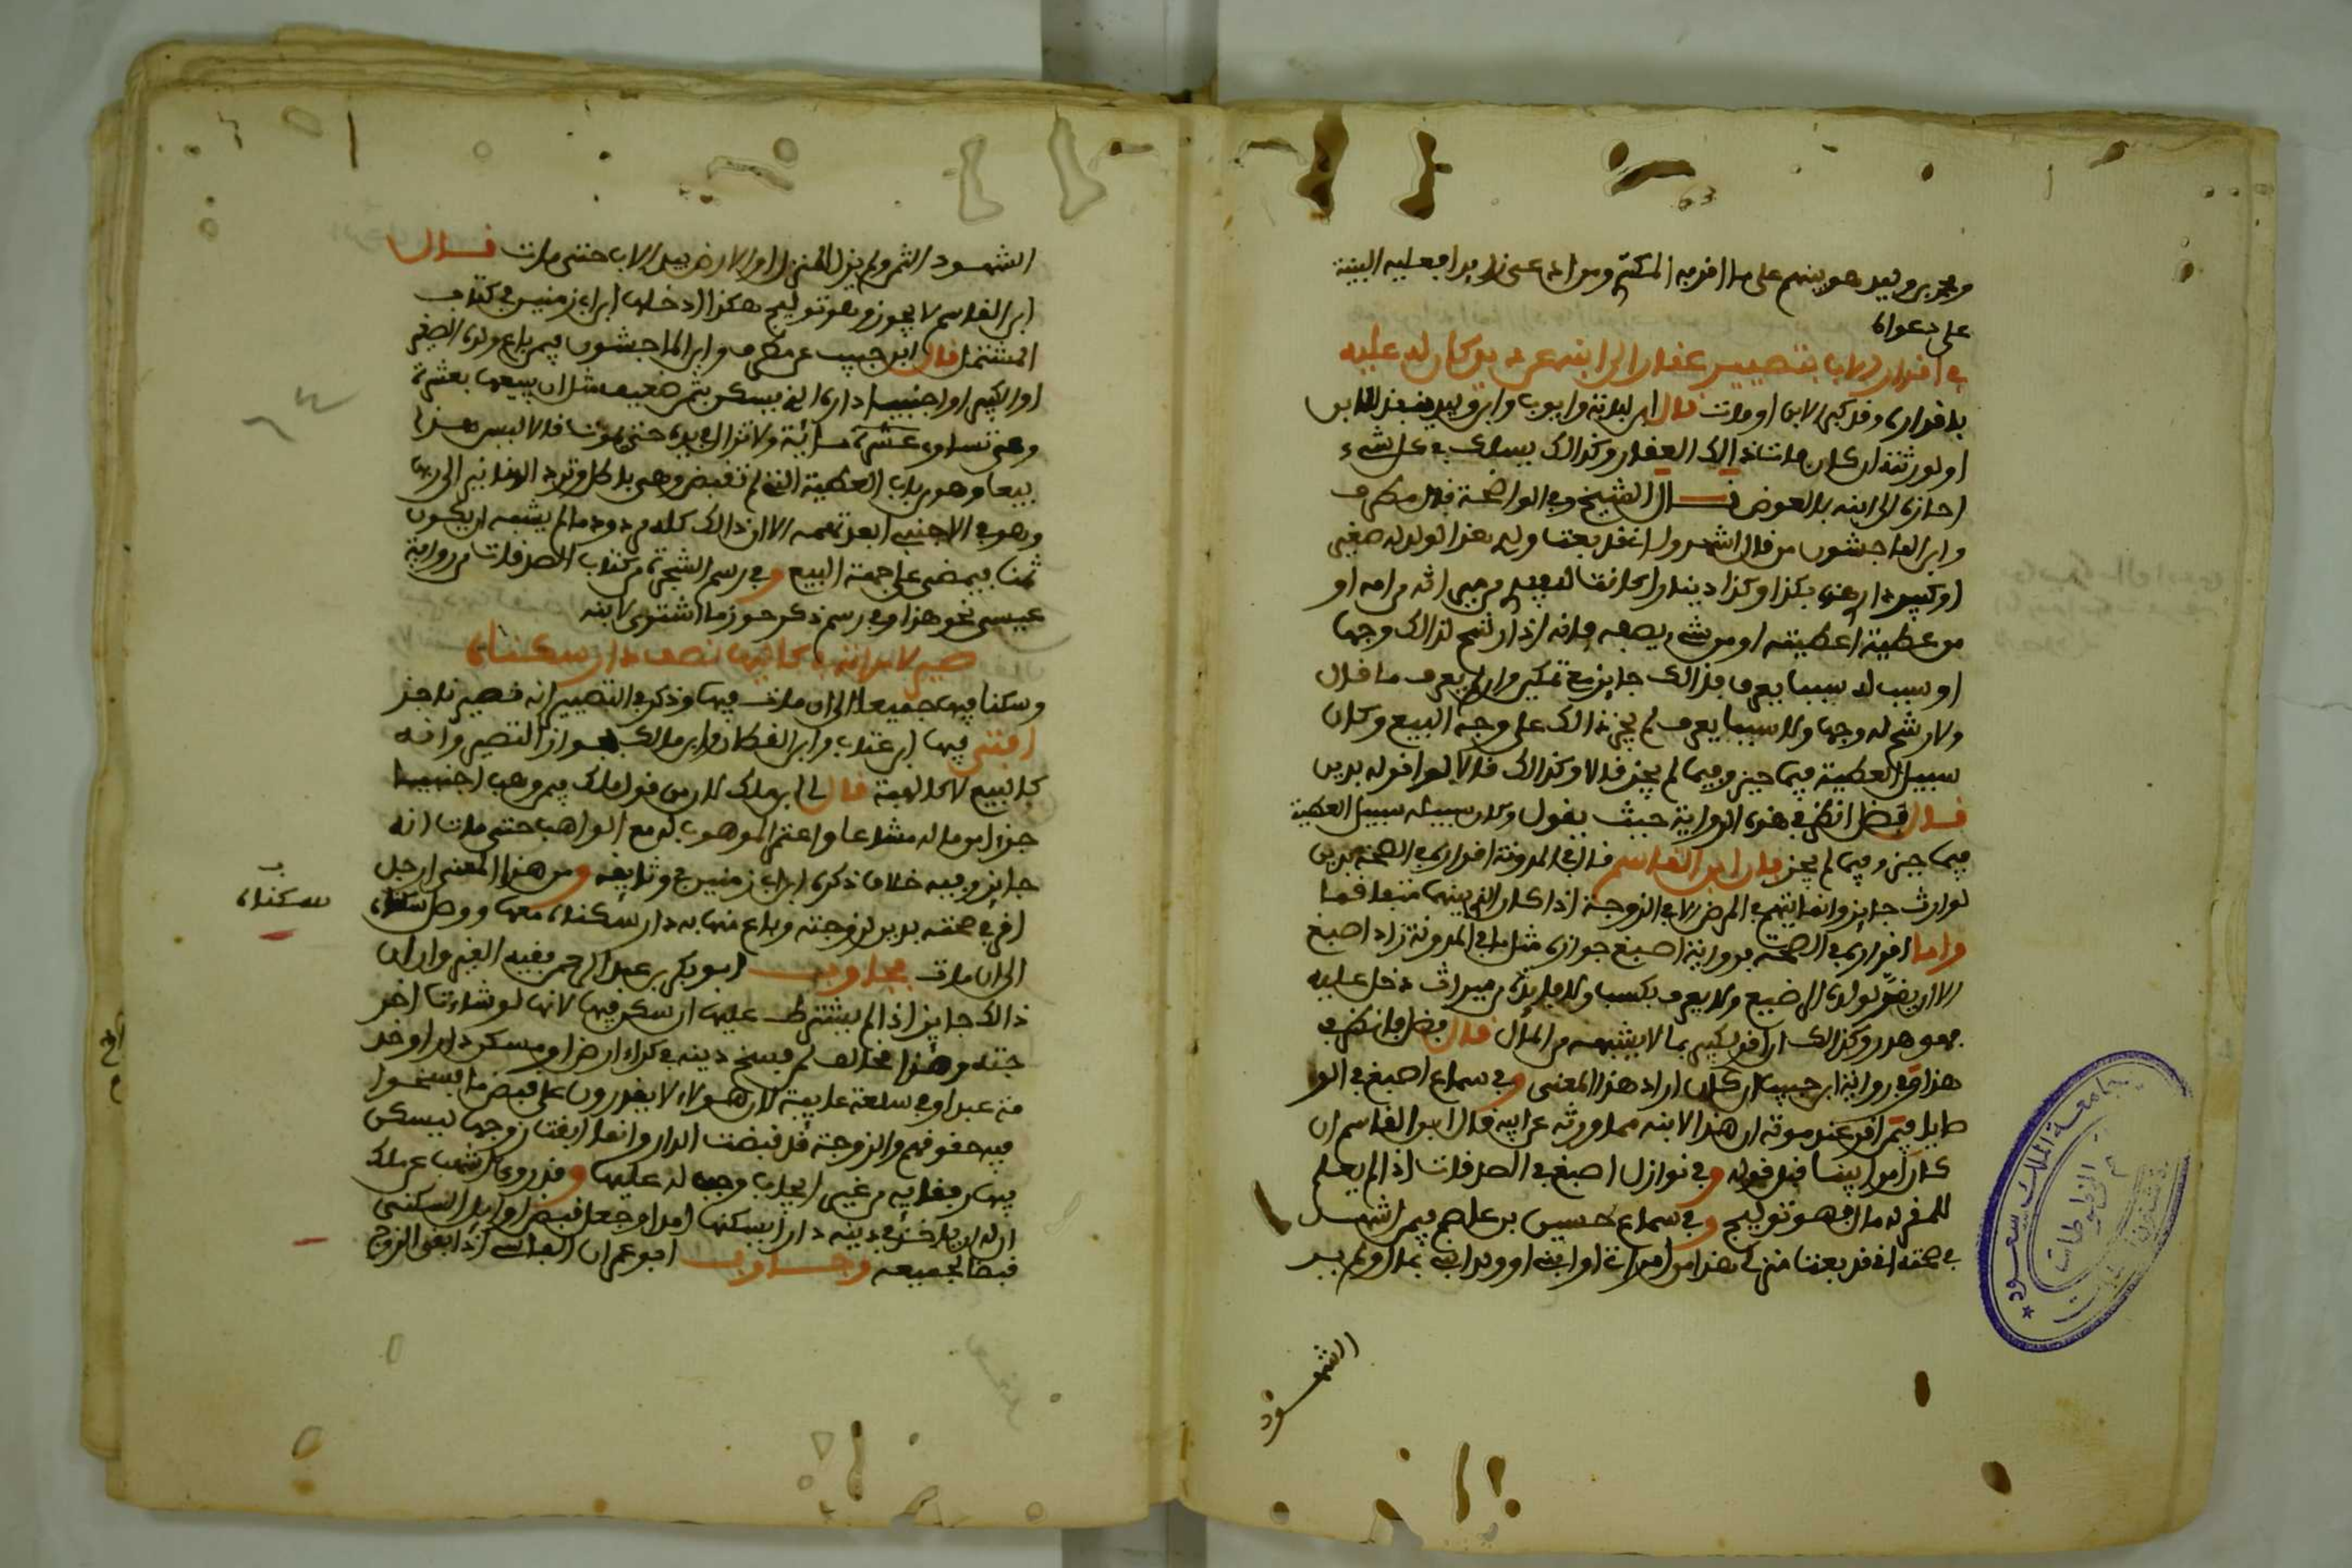 63
على دعواه
في اقرار الاب بتصيير عقار الى ابنه عن دين كان له عليه
باقراره وقد كبر الابن او مات قال ابن لبابة وايوب وابن وليد ينفذ للابن
او لورثته ان كان مات ذالك العقار وكذالك يسلك في كل شيء
احازه الى ابنه بالعوض قال الشيخ وفي الواضحة قال مطرف
وابن الماجشون من قال اشهدوا اني قد بعت ولدي هذا لولد له صغير
او كبير داري هذه بكذا وكذا دينارا كانت له بيدي من ميراثه من امه او
من عطية اعطيته او من شيء يصفه فانه اذا رئي لذالك وجها
او سبب له سببا يعرف فذالك جايز مع يمينه وان لم يعرف ما قال
ولا رئي له وجها ولا سببا يعرف لم يجز ذالك على وجه البيع وكان
سبيل العطية فيما حيز وفيما لم يحز قالا وكذالك قالا لو اقر له بدين
قال فضل انظر في هذه الرواية حيث يقول وكان سبيله سبيل العطية
فيما حيز وفيما لم يحز فان ابن القاسم قال في المدونة اقراره في الصحة بدين
لوارث جايز وانما يتهم في المرض الا في الزوجة اذا كان الذي بينهما متفاقما
واما اقراره في الصحة فرواية اصبغ جوازه مثل ما في المدونة زاد اصبغ
الا ان يقر لولده الرضيع ولا يعرف بكسب ولا فايدة من ميراث دخل عليه
فهو هدر وكذالك ان اقر لكبير بما لا يشبهه من المال قال فضل فانظر في
هذا وفي رواية ابن حبيب ان كان اراد هذا المعنى وفي سماع اصبغ في الوصايا
فيمن اقر عند موته ان هذا لابنه مما ورثه عن ابيه قال ابن القاسم ان
كان امرا بينا قبل قوله وفي نوازل اصبغ في الصدقات اذا لم يعلم
للمقر له مال فهو توليج وفي سماع حسين بن عاصم فيمن اشهد
في صحته اني قد بعت منزلي هذا من امراتي او ابني او وارثي بمال ولم ير
الشهود
الشهود الثمن ولم يزل المنزل او الارض بيد الاب حتى مات قال
ابن القاسم لا يجوز وهو توليج هكذا ادخلها ابن ابي زمنين في كتاب
المشتمل قال ابن حبيب عن مطرف وابن الماجشون فيمن باع ولده الصغير
او الكبير او اجنبيا داره التي يسكن بثمن ضعيف مثل ان يبيعها بعشرة
وهي تساوي مائة ولا تزال في يده حتى يموت قالا ليس هذا
بيعا وهو من باب العطية التي لم تقبض وهي باطل وترد الدنانير الى ربها
وهو في الاجنبي ابعد تهمة الا ان ذالك كله مردود ما لم يشبه ان يكون
ثمنا فيمضى على جهة البيع وفي رسم الشجرة من كتاب الصدقات من رواية
عيسى نحو هذا وفي رسم ذكر حوز ما اشترى لابنه
صير لامراته بكاليها نصف دار سكناه
وسكنا فيها جميعا الى ان مات فيها وذكر في التصيير انه تصيير ناجز
افتى فيها ابن عتاب وابن القطان وابن مالك بجواز التصيير وانه
كالبيع لا كالهبة قال لي ابن مالك لان من قول مالك فيمن وهب اجنبيا
جزءا من ماله مشاعا واعتمر الموهوب له مع الواهب حتى مات انه
جايز وفيه خلاف ذكره ابن ابي زمنين في وثايقه ومن هذا المعنى رجل
اقر في صحته بدين لزوجته وباع منها به دار سكناه معها ووصل سكناه
سكناه
الى ان مات فجاوب ابو بكر بن عبد الرحمن فقيه القيروان ان
ذالك جايز اذا لم يشترط عليها ان يسكن فيها لانها لو شاءت اخرجته
وهذا مخالف لمن فسخ دينه في كراء ارض او مسكن دار او خدمة
عبد او في سلعة غايبة لان هؤلاء لا يقدرون على قبض ما فسخوا
فيه حقوقهم والزوجة قد قبضت الدار وانما ابقت زوجها ليسكن
فيها رفقا به من غير ايجاب وجب له عليها وقد روى اشهب عن مالك
ان له ان ياخذ في دينه دارا يسكنها امدا وجعل قبض اوايل السكنى
قبضا لجميعه وجاوب ابو عمران الفاسي اذا بقي الزوج